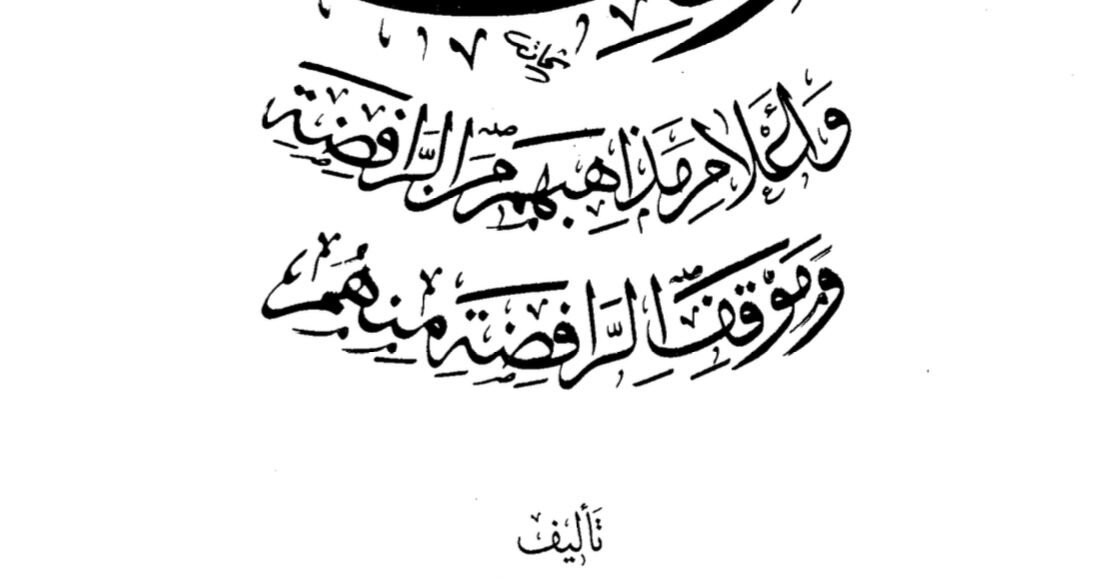 وَأَعْلَامِ مَذَاهِبِهِمْ مِنَ الرَّافِضَةِ
وَمَوْقِفِ الرَّافِضَةِ مِنْهُمْ
تَأليف